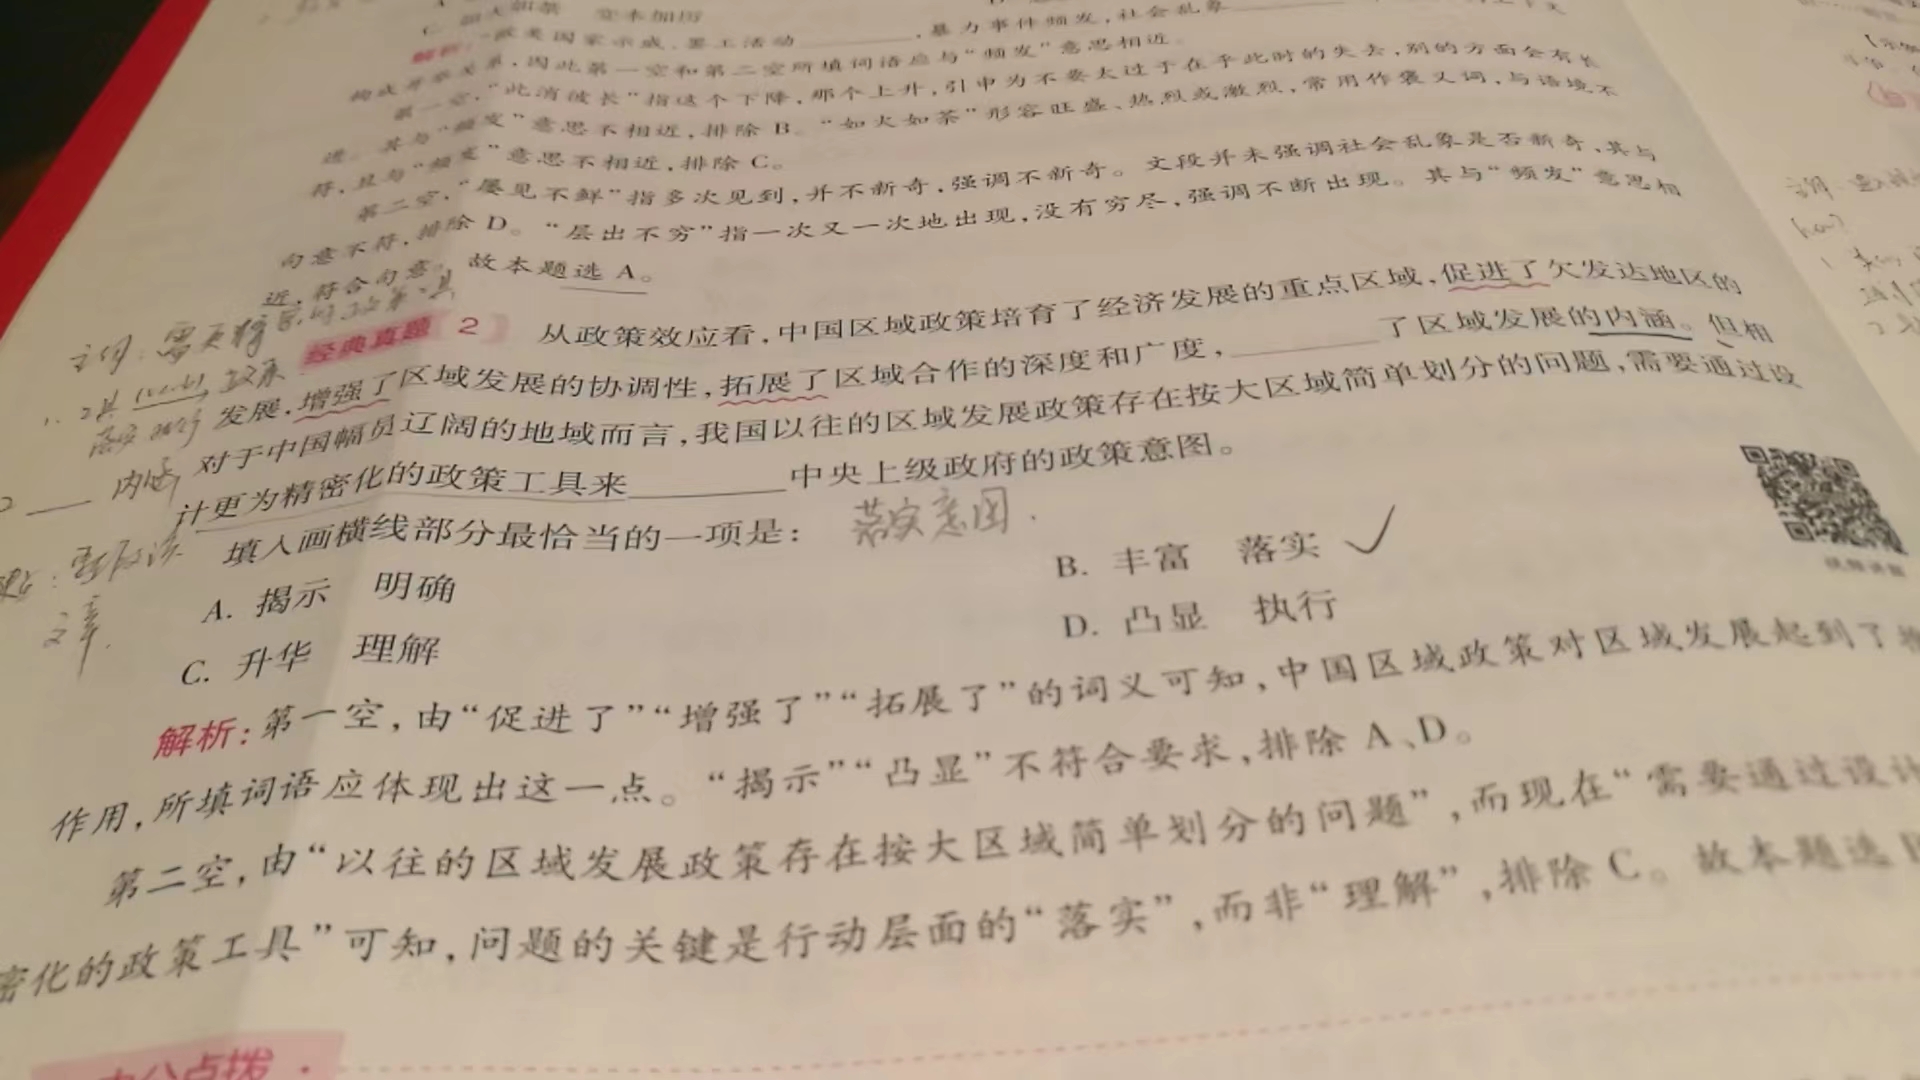 C. 如火如荼 变本加厉
解析:欧美国家示威、罢工活动________,暴力事件频发,社会乱象
构成并举关系,因此第一空和第二空所填词语应与“频发”意思相近。
第一空,“此消彼长”指这个下降,那个上升,引申为不要太过于在乎此时的失去,别的方面会有长
进。其与“频发”意思不相近,排除 B。“如火如荼”形容旺盛、热烈或激烈,常用作褒义词,与语境不
符,且与“频发”意思不相近,排除 C。
第二空,“屡见不鲜”指多次见到,并不新奇,强调不新奇。文段并未强调社会乱象是否新奇,其与
句意不符,排除 D。“层出不穷”指一次又一次地出现,没有穷尽,强调不断出现。其与“频发”意思相
近,符合句意。故本题选 A。
经典真题 2 从政策效应看,中国区域政策培育了经济发展的重点区域,促进了欠发达地区的
发展,增强了区域发展的协调性,拓展了区域合作的深度和广度,________了区域发展的内涵。但相
对于中国幅员辽阔的地域而言,我国以往的区域发展政策存在按大区域简单划分的问题,需要通过设
计更为精密化的政策工具来________中央上级政府的政策意图。
填入画横线部分最恰当的一项是:
落实意图.
A. 揭示 明确
B. 丰富 落实
C. 升华 理解
D. 凸显 执行
解析:第一空,由“促进了”“增强了”“拓展了”的词义可知,中国区域政策对区域发展起到了
作用,所填词语应体现出这一点。“揭示”“凸显”不符合要求,排除 A、D。
第二空,由“以往的区域发展政策存在按大区域简单划分的问题”,而现在“需要通过设计
密化的政策工具”可知,问题的关键是行动层面的“落实”,而非“理解”,排除 C。故本题选
内涵